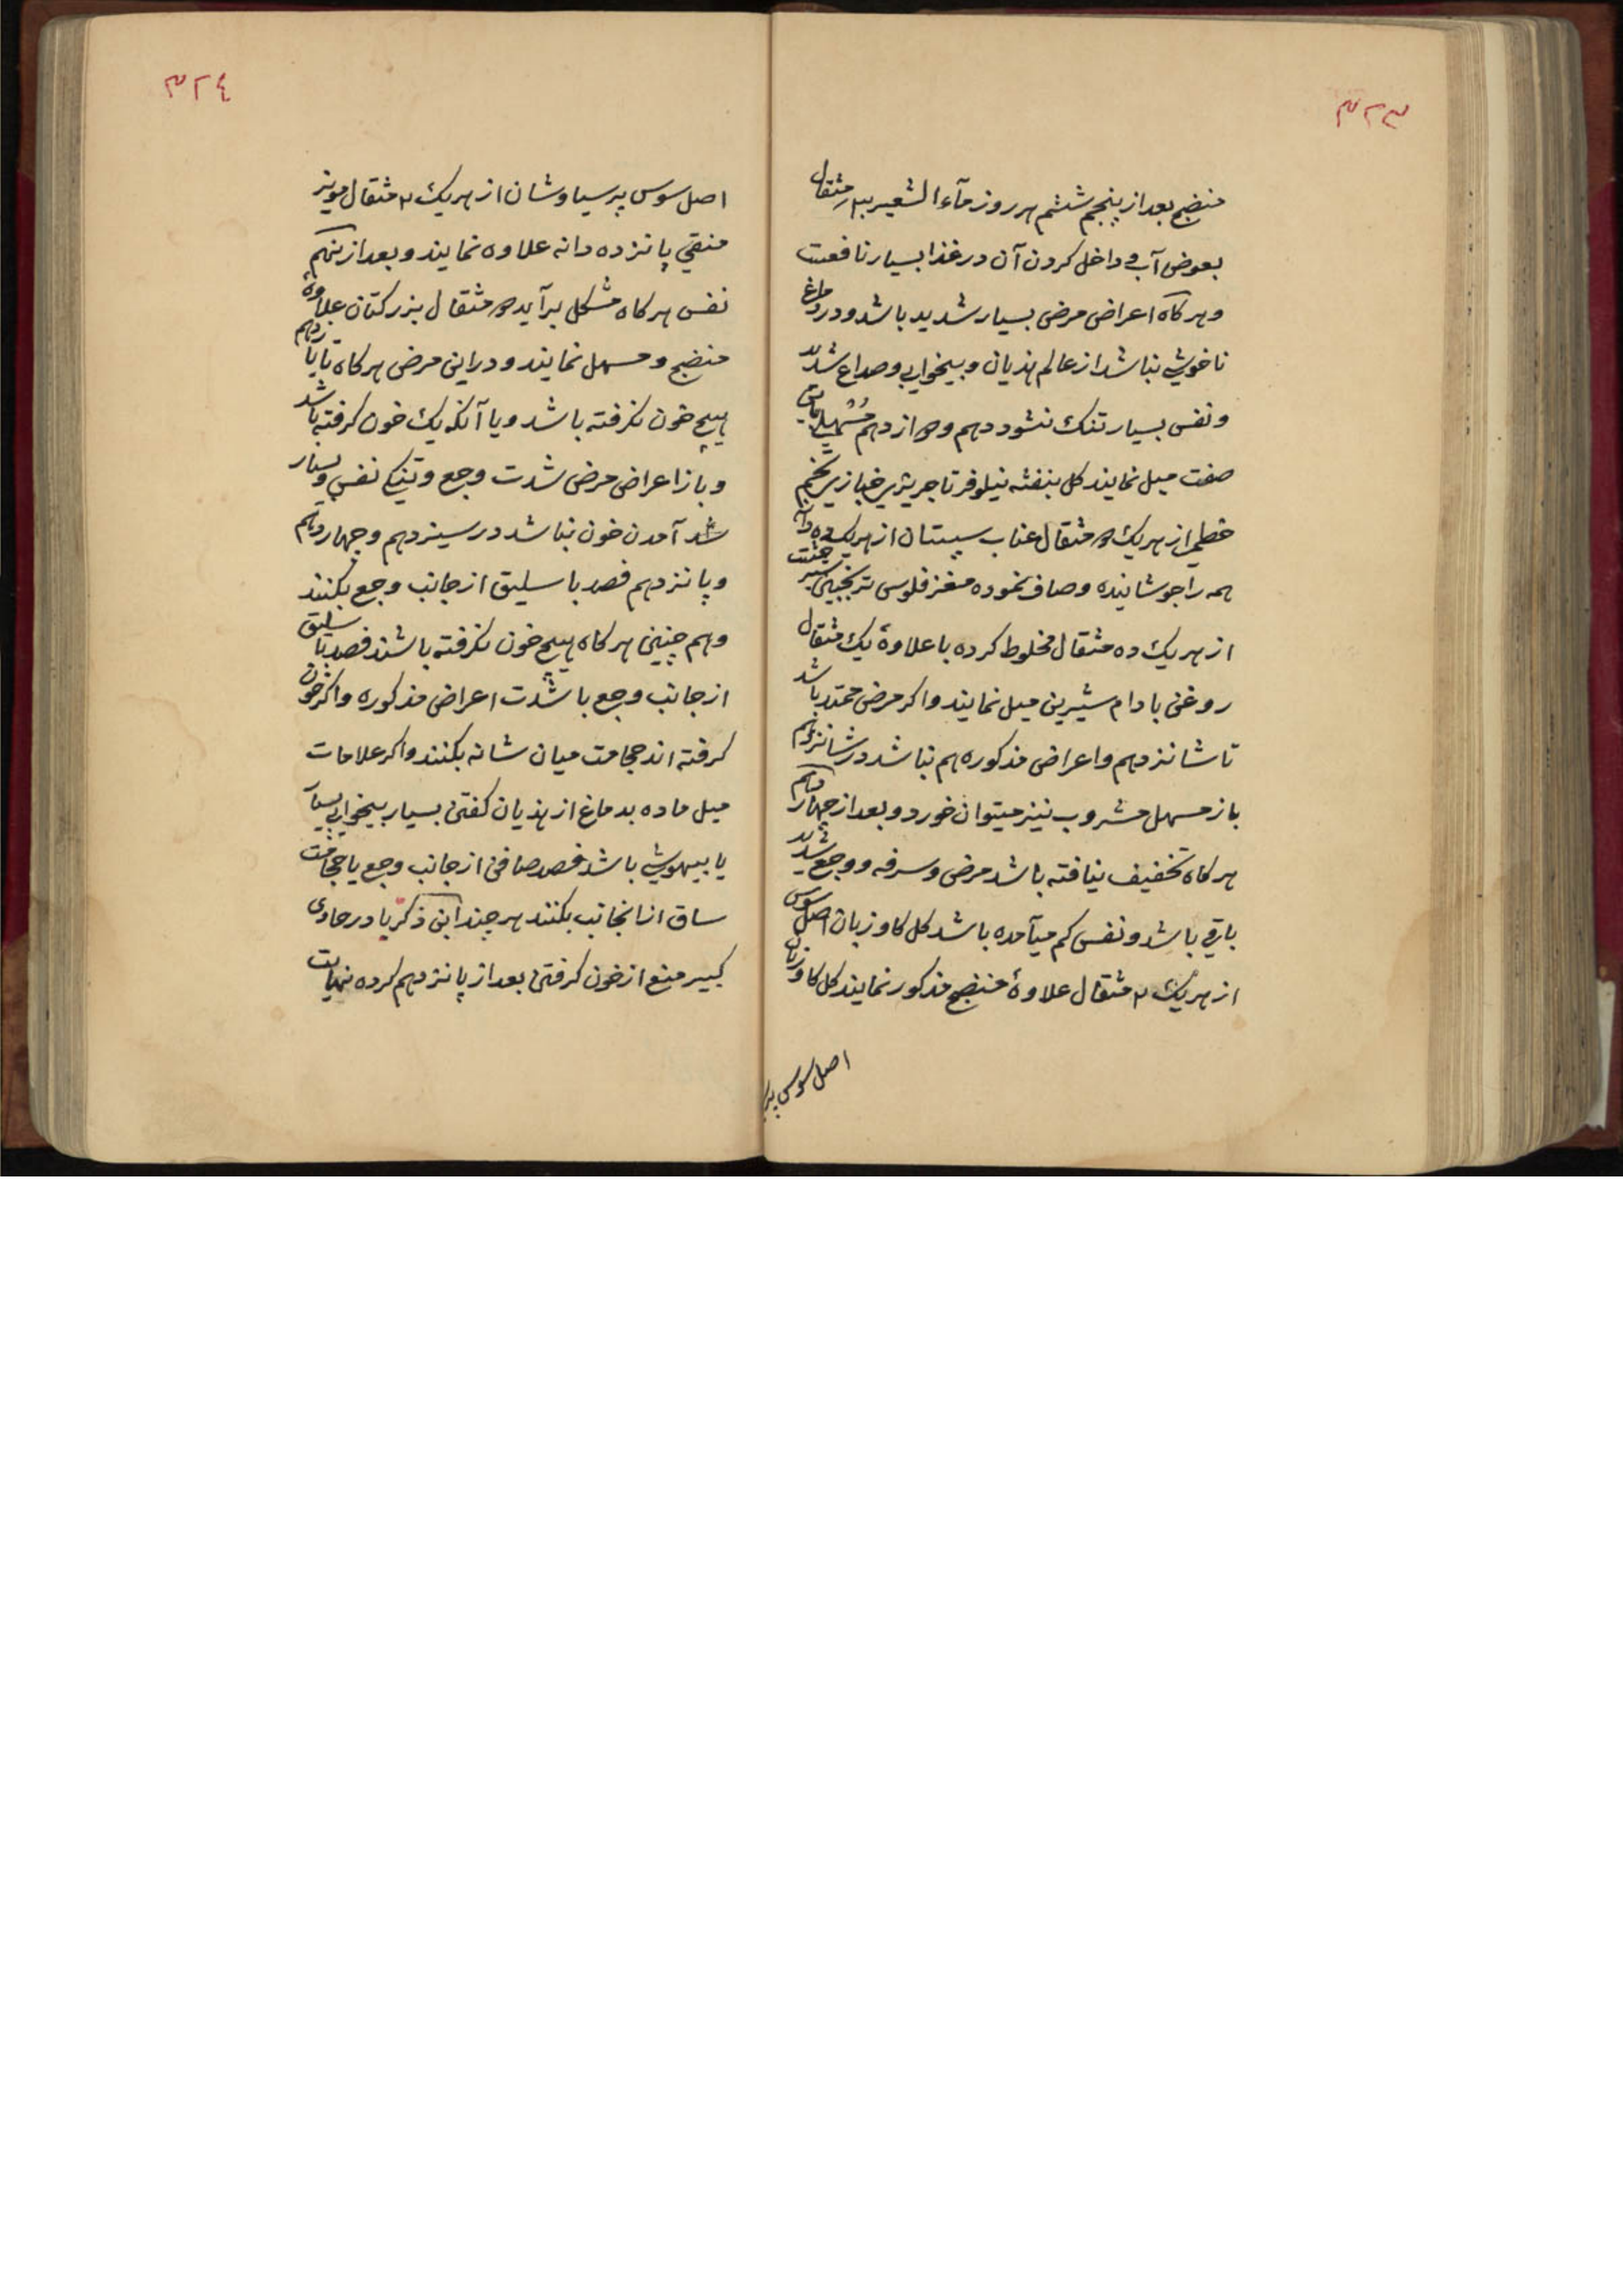 ۳۲۳
منضج بعد از پنجم ششم هر روز مآء الشعیر مثقال
بعوض آب و داخل کردن آن در غذا بسیار نافعست
و هرکاه اعراض مرض بسیار شدید باشد و در دماغ
ناخوشی نباشد از عالم هذیان و بیخوابی و صداع شدید
و نفس بسیار تنک نشود دهم و دوازدهم مسهل باین
صفت میل نمایند کل بنفشه نیلوفر تاجریزی خبازی تخم
خطمی از هریک مثقال عناب سپستان از هریک ده دانه
همه را جوشانیده و صاف نموده مغز فلوس ترنجبین
از هریک ده مثقال مخلوط کرده با علاوۀ یک مثقال
روغن بادام شیرین میل نمایند و اکر مرض ممتد باشد
تا شانزدهم و اعراض مذکوره هم نباشد در شانزدهم
باز مسهل مشروب نیز میتوان خورد و بعد از چهاردهم
هرکاه تخفیف نیافته باشد مرض و سرفه و وجع شدید
باقی باشد و نفس کم میآمده باشد کل کاوزبان اصل سوس
از هریک ۲ مثقال علاوۀ منضج مذکور نمایند کل کاوزبان
اصل سوس پر
۳۲٤
اصل سوس پرسیاوشان از هریک ۲ مثقال مویز
منقی پانزده دانه علاوه نمایند و بعد از نهم
نفس هرکاه مشکل برآید مثقال بزر کتان علاوۀ
منضج و مسهل نمایند و در این مرض هرکاه تا یازدهم
هیچ خون نکرفته باشد و یا آنکه یک خون کرفته باشد
و باز اعراض مرض شدت وجع و تنکی نفس و بسیار
شد آمدن خون نباشد در سیزدهم و چهاردهم
و پانزدهم فصد باسلیق از جانب وجع بکنند
و هم چنین هرکاه هیچ خون نکرفته باشند فصد باسلیق
از جانب وجع با شدت اعراض مذکوره و اکر خون
کرفته اند حجامت میان شانه بکنند و اکر علامات
میل ماده بدماغ از هذیان کفتن بسیار بیخوابی بسیار
یا بیهوشی باشد فصد صافن از جانب وجع یا حجامت
ساق از انجانب بکنند هر چند ابن ذکریا در حاوی
کبیر منع از خون کرفتن بعد از پانزدهم کرده نهایت